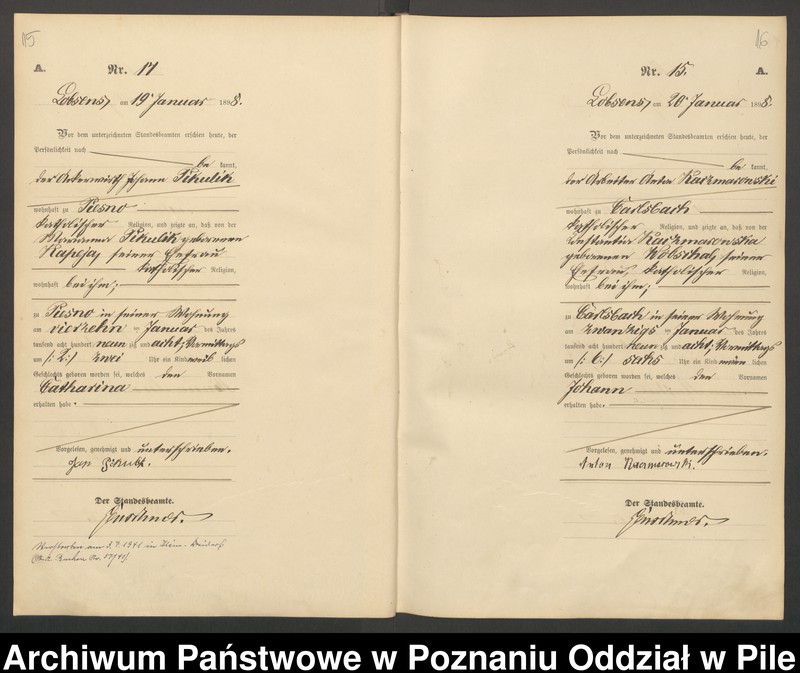 15
A.
Nr. 14
Lobsens, am 19 Januar 1898.
Vor dem unterzeichneten Standesbeamten erschien heute, der
Persönlichkeit nach
be kannt,
der Ackerwirth Johann Pikulik
wohnhaft zu Piesno
katholischer Religion, und zeigte an, daß von der
Marianna Pikulik geborenen
Kapeja, seiner Ehefrau
katholischer Religion,
wohnhaft bei ihm;
zu Piesno in seiner Wohnung
am vierzehn ten Januar des Jahres
tausend acht hundert neun zig und acht, Vormittags
um /: 2 :/ zwei Uhr ein Kind weib lichen
Geschlechts geboren worden sei, welches den Vornamen
Catharina
erhalten habe.
Vorgelesen, genehmigt und unterschrieben.
Jan Pikulik.
Der Standesbeamte.
Verstorben am 3.7.1941 in
16
Nr. 15.
A.
Lobsens, am 20 Januar 1898.
Vor dem unterzeichneten Standesbeamten erschien heute, der
Persönlichkeit nach
be kannt,
der Arbeiter Anton Kaczmarowski
wohnhaft zu Carlsbach
katholischer Religion, und zeigte an, daß von der
Constantia Kaczmarowska
geborenen seiner
Ehefrau, katholischer Religion,
wohnhaft bei ihm;
zu Carlsbach in seiner Wohnung
am zwanzigs ten Januar des Jahres
tausend acht hundert neun zig und acht, Vormittags
um /: 6 :/ sechs Uhr ein Kind männ lichen
Geschlechts geboren worden sei, welches den Vornamen
Johann
erhalten habe.
Vorgelesen, genehmigt und unterschrieben.
Anton Kaczmarowski.
Der Standesbeamte.
Archiwum Państwowe w Poznaniu Oddział w Pile